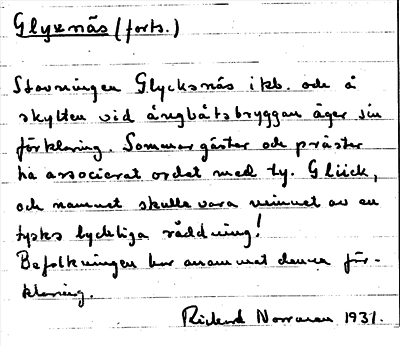 Glyxnäs (forts.)
Stavningen Glycksnäs i kb. och å
skylten vid ångbåtsbryggan äger sin
förklaring. Sommargäster och präster
ha associerat ordet med ty. Glück,
och namnet skulle vara minnet av en
tysks lyckliga räddning!
Befolkningen har anammat denna för-
klaring.
Rickard Norrman 1931.